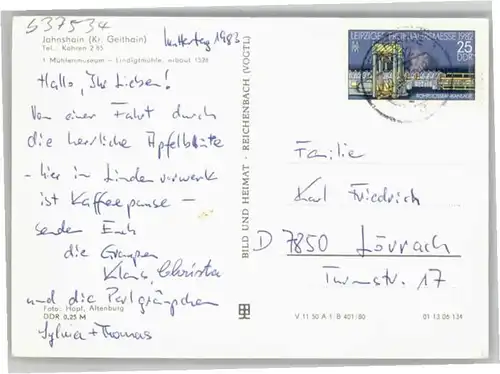 637534
Jahnshain (Kr. Geithain)
Tel.: Kohren 2 85
1 Mühlenmuseum – Lindigtmühle, erbaut 1528
Muttertag 1983
Hallo, Ihr Lieben!
Von einer Fahrt durch
die herrliche Apfelblüte
– hier in Lindenvorwerk
ist Kaffeepause –
senden Euch
die Graupen
Klaus, Christa
und die Perlgräupchen
Foto: Hopf, Altenburg
DDR 0,25 M
Sylvia + Thomas
BILD UND HEIMAT · REICHENBACH (VOGTL)
LEIPZIGER FRÜHJAHRSMESSE 1982
25
DDR
Familie
Karl Friedrich
D 7850 Lörrach
Turmstr. 17
V 11 50 A 1 B 401/80
01 13 06 134